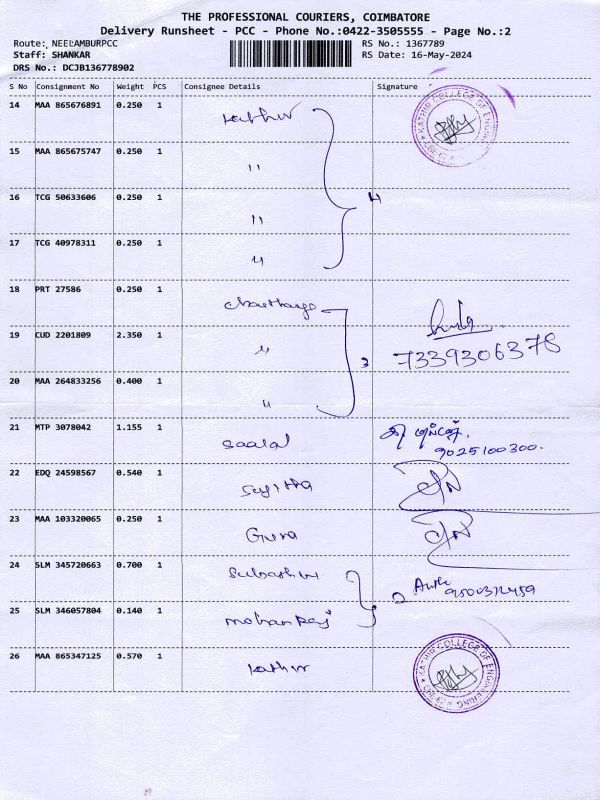 THE PROFESSIONAL COURIERS, COIMBATORE
Delivery Runsheet - PCC - Phone No.:0422-3505555 - Page No.:2
Route: NEELAMBURPCC RS No.: 1367789
Staff: SHANKAR RS Date: 16-May-2024
DRS No.: DCJB136778902
S No Consignment No Weight PCS Consignee Details Signature
14 MAA 865676891 0.250 1 Kathir KATHIR COLLEGE OF ENGINEERING
15 MAA 865675747 0.250 1 "
16 TCG 50633606 0.250 1 " 4
17 TCG 40978311 0.250 1 "
18 PRT 27586 0.250 1
19 CUD 2201809 2.350 1 " 3 7339306378
20 MAA 264833256 0.400 1 "
21 MTP 3078042 1.155 1 9025100300.
22 EDQ 24598567 0.540 1 Sujitha
23 MAA 103320065 0.250 1 Guna
24 SLM 345720663 0.700 1 2
25 SLM 346057804 0.140 1 mohan Raj
26 MAA 865347125 0.570 1 Kathir KATHIR COLLEGE OF ENGINEERING